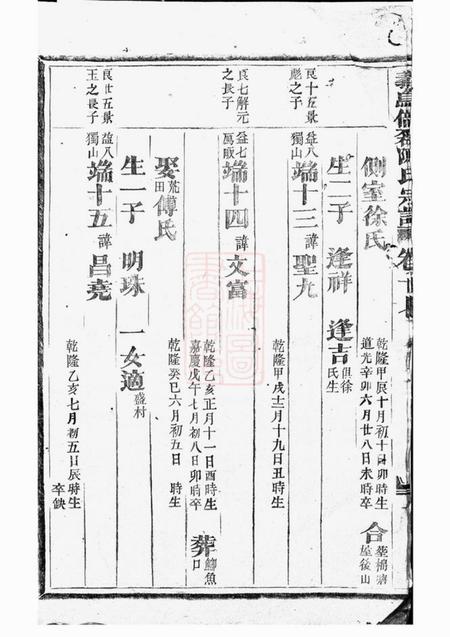 側室徐氏
乾隆甲辰十月初十日卯時生
道光辛卯六月廿八日未時卒
合葬
屋後山
生二子 逢祥 逢吉
俱徐
氏生
良十五景
彪之三子
益八
獨山
端十三諱聖九
乾隆甲戌十二月十九日丑時生
良七解元
之長子
益七
萬畈
端十四諱文富
乾隆乙亥正月十一日酉時生
嘉慶戊午七月初八日卯時卒
葬
鯽魚
口
娶
荒
田
傅氏
乾隆癸巳六月初五日 時生
生一子 明珠 一女適
盛村
良廿五景
王之長子
益八
獨山
端十五諱昌堯
乾隆乙亥七月初五日辰時生
卒缺